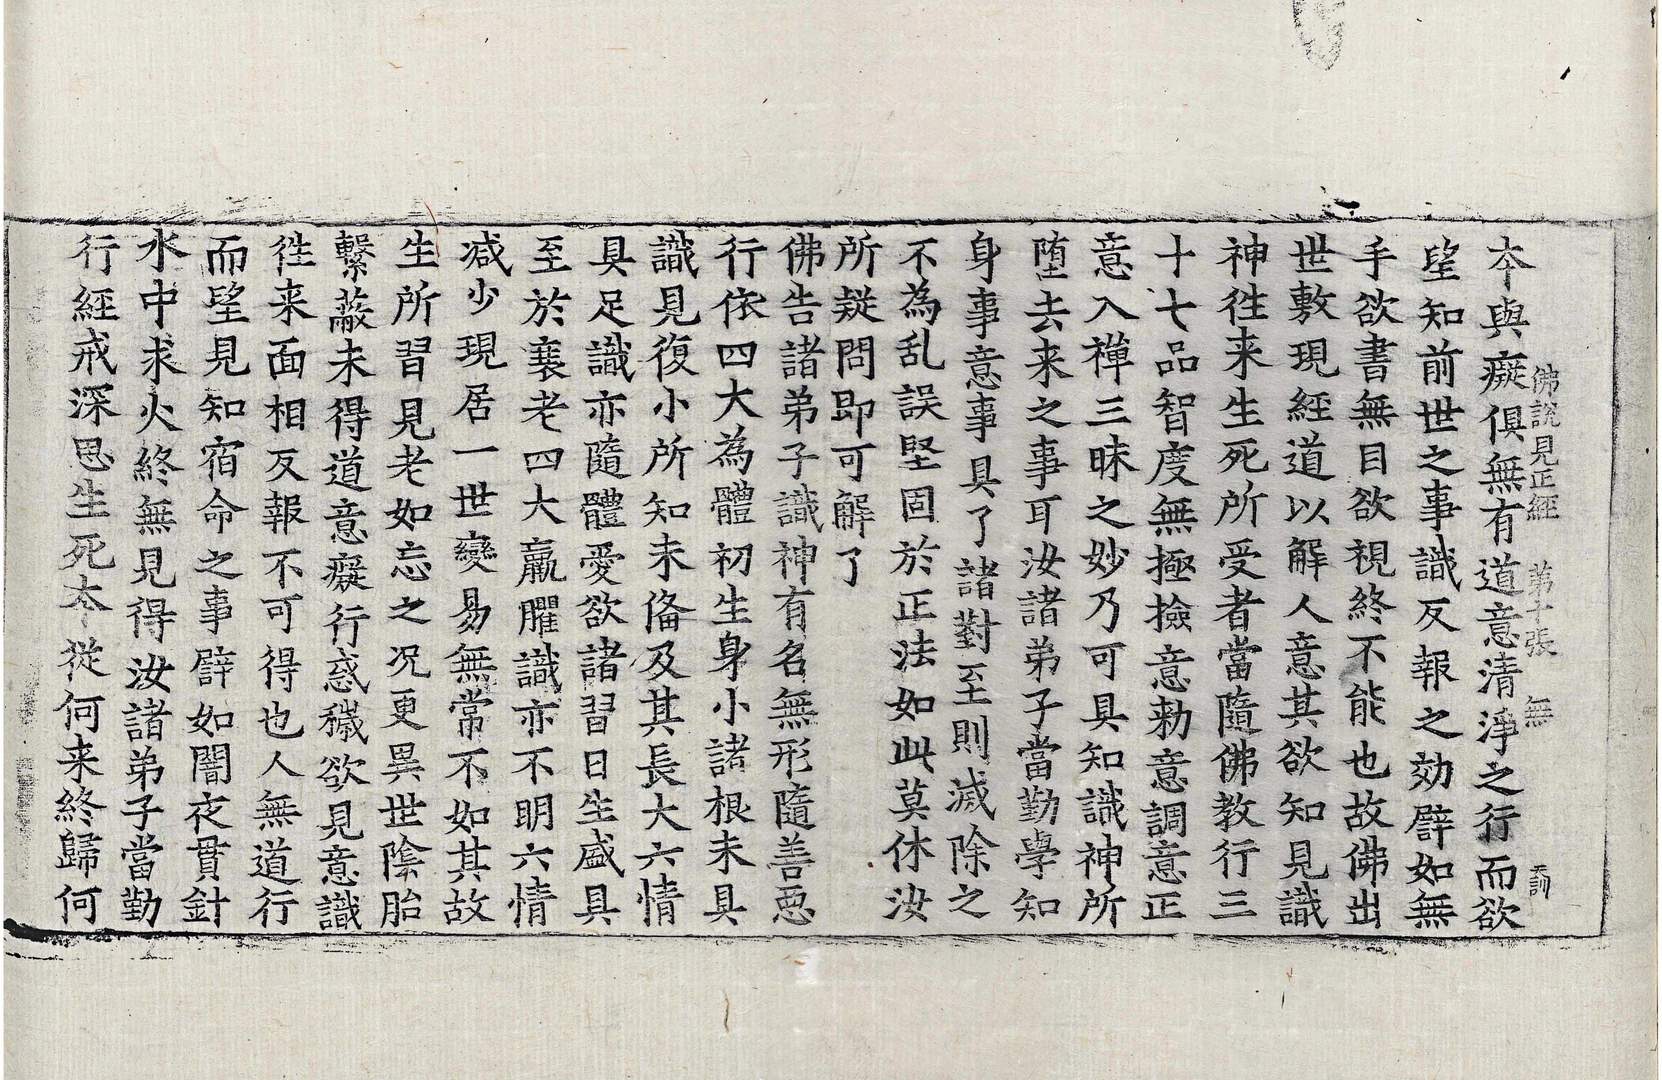 夲與癡俱無有道意清淨之行而欲
佛說見正經 第十張 無 天訓
望知前世之事識反報之効譬如無
手欲書無目欲視終不能也故佛出
世敷現經道以解人意其欲知見識
神徃来生死所受者當隨佛教行三
十七品智度無極撿意勑意調意正
意入禪三昧之妙乃可具知識神所
墮去来之事耳汝諸弟子當勤學知
身事意事具了諸對至則滅除之
不為乱誤堅固於正法如此莫休汝
所疑問即可解了
佛告諸弟子識神有名無形隨善惡
行依四大為體初生身小諸根未具
識見復小所知未俻及其長大六情
具足識亦隨體愛欲諸習日生盛具
至於衰老四大羸臞識亦不明六情
减少現居一世變易無常不如其故
生所習見老如忘之况更異世隂胎
繫蔽未得道意癡行惑穢欲見意識
徃来面相反報不可得也人無道行
而望見知宿命之事譬如闇夜貫針
水中求火終無見得汝諸弟子當勤
行經戒深思生死夲從何来終歸何